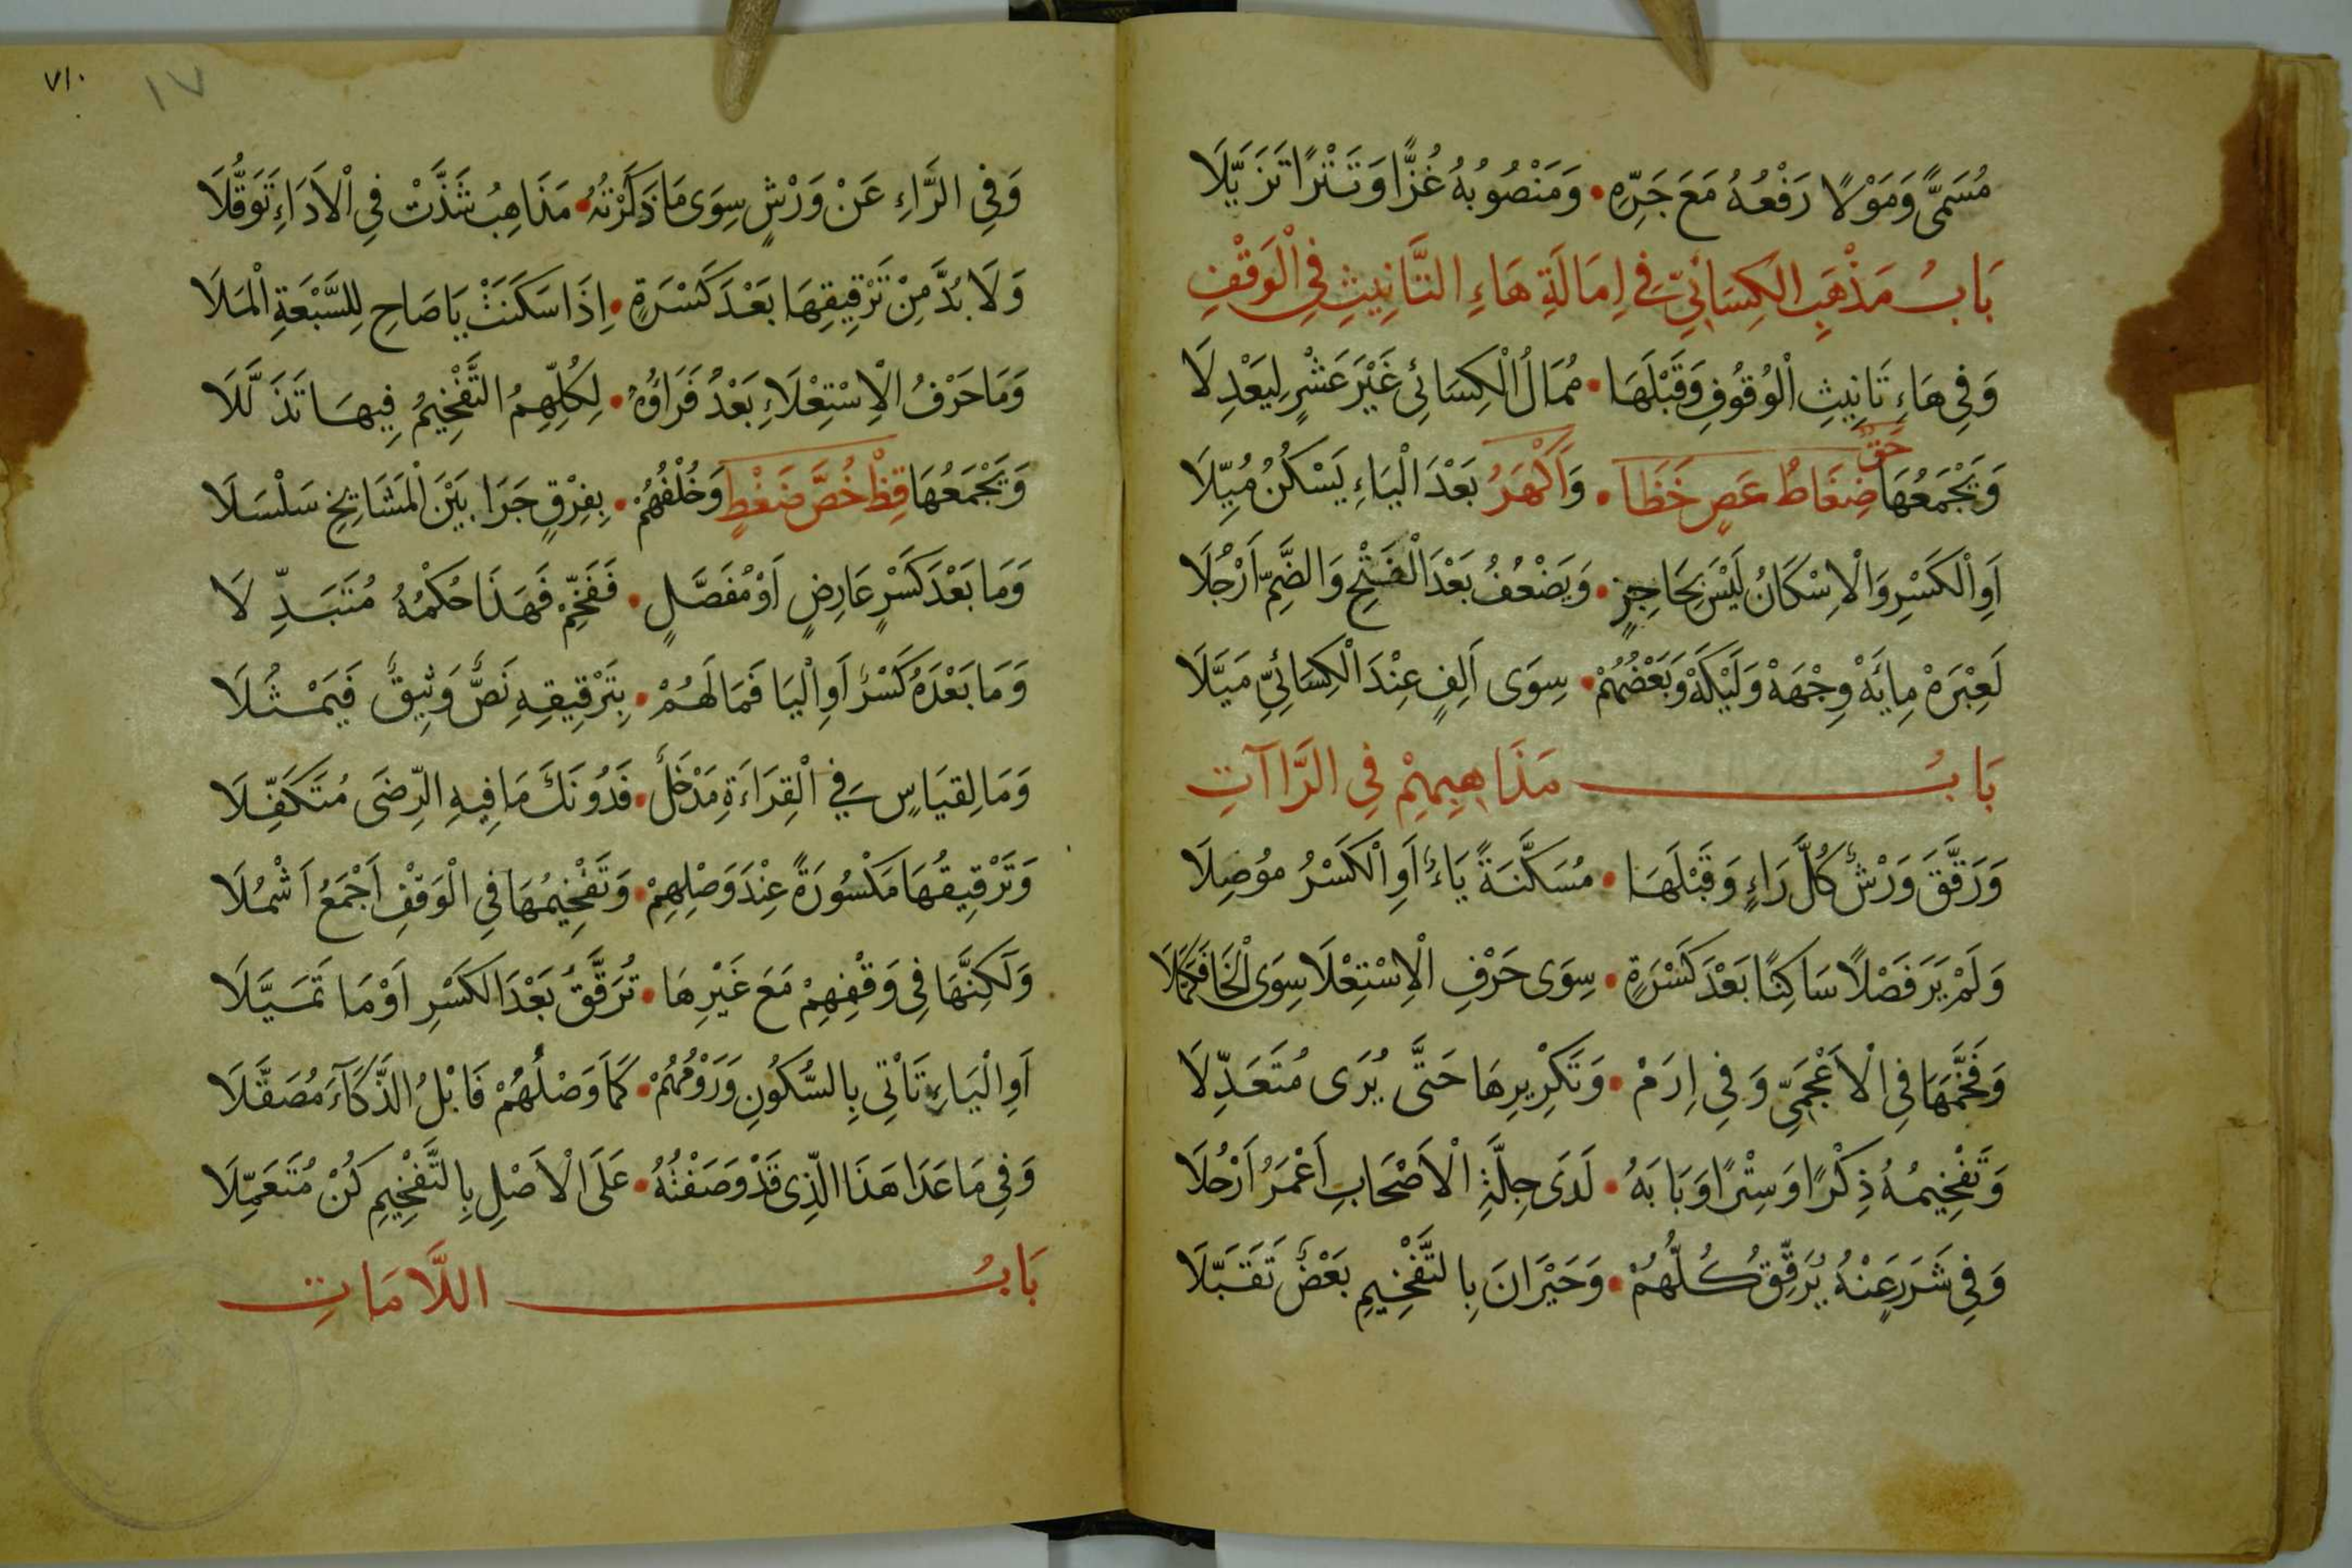 مُسَمًّى وَمَوْلًا رَفْعُهُ مَعَ جَرِّهِ • وَمَنْصُوبُهُ غُزًّا وَتَتْرًا تَزَيَّلَا
بَابُ مَذْهَبِ الْكِسَائِيِّ فِي اِمَالَةِ هَاءِ التَّانِيثِ فِي الْوَقْفِ
وَفِي هَاءِ تَانِيثِ الْوُقُوفِ وَقَبْلَهَا • مُمَالُ الْكِسَائِي غَيْرَ عَشْرٍ لِيَعْدِلَا
وَيَجْمَعُهَا حَقٌّ ضِغَاطٌ عَصٍ خَظَا • وَاَكْهَرُ بَعْدَ الْيَاءِ يَسْكُنُ مُيِّلَا
اَوِ الْكَسْرِ وَالْاِسْكَانُ لَيْسَ بِحَاجِزٍ • وَيَضْعُفُ بَعْدَ الْفَتْحِ وَالضَّمِّ اَرْجُلَا
لَعِبْرَهْ مِائَهْ وِجْهَهْ وَلَيْكَهْ وَبَعْضُهُمْ • سِوَى اَلِفٍ عِنْدَ الْكِسَائِيِّ مَيَّلَا
بَابُ مَذَاهِبِهِمْ فِي الرَّاآتِ
وَرَقَّقَ وَرْشٌ كُلَّ رَاءٍ وَقَبْلَهَا • مُسَكَّنَةً يَاءٌ اَوِ الْكَسْرُ مُوصِلَا
وَلَمْ يَرَ فَصْلًا سَاكِنًا بَعْدَ كَسْرَةٍ • سِوَى حَرْفِ الْاِسْتِعْلَا سِوَى الْخَا فَكَمَّلَا
وَفَخَّمَهَا فِي الْاَعْجَمِيِّ وَفِي اِرَمْ • وَتَكْرِيرِهَا حَتَّى يُرَى مُتَعَدِّلَا
وَتَفْخِيمُهُ ذِكْرًا وَسِتْرًا وَبَابَهُ • لَدَى جِلَّةِ الْاَصْحَابِ اَعْمَرُ اَرْحُلَا
وَفِي شَرَرٍ عَنْهُ يُرَقِّقُ كُلُّهُمْ • وَحَيْرَانَ بِالتَّفْخِيمِ بَعْضٌ تَقَبَّلَا
٧١٠
١٧
وَفِي الرَّاءِ عَنْ وَرْشٍ سِوَى مَا ذَكَرْتُهُ • مَذَاهِبُ شَذَّتْ فِي الْاَدَاءِ تَوَقُّلَا
وَلَا بُدَّ مِنْ تَرْقِيقِهَا بَعْدَ كَسْرَةٍ • اِذَا سَكَنَتْ يَا صَاحِ لِلسَّبْعَةِ الْمَلَا
وَمَا حَرْفُ الْاِسْتِعْلَاءِ بَعْدُ فَرَاؤُهُ • لِكُلِّهِمُ التَّفْخِيمُ فِيهَا تَذَلَّلَا
وَيَجْمَعُهَا قِظْ خُصَّ ضَغْطٍ وَخُلْفُهُمْ • بِفِرْقٍ جَرَا بَيْنَ الْمَشَايِخِ سَلْسَلَا
وَمَا بَعْدَ كَسْرٍ عَارِضٍ اَوْ مُفَصَّلٍ • فَفَخِّمْ فَهَذَا حُكْمُهُ مُتَبَدِّلَا
وَمَا بَعْدَهُ كَسْرٌ اَوِ الْيَا فَمَا لَهُمْ • بِتَرْقِيقِهِ نَصٌّ وَثِيقٌ فَيَمْثُلَا
وَمَا لِقِيَاسٍ فِي الْقِرَاءَةِ مَدْخَلٌ • فَدُونَكَ مَا فِيهِ الرِّضَى مُتَكَفِّلَا
وَتَرْقِيقُهَا مَكْسُورَةً عِنْدَ وَصْلِهِمْ • وَتَفْخِيمُهَا فِي الْوَقْفِ اَجْمَعُ اَشْمُلَا
وَلَكِنَّهَا فِي وَقْفِهِمْ مَعَ غَيْرِهَا • تُرَقَّقُ بَعْدَ الْكَسْرِ اَوْ مَا تَمَيَّلَا
اَوِ الْيَاءِ تَاْتِي بِالسُّكُونِ وَرَوْمُهُمْ • كَمَا وَصْلُهُمْ فَابْلُ الذَّكَآءَ مُصَقَّلَا
وَفِي مَا عَدَا هَذَا الَّذِي قَدْ وَصَفْتُهُ • عَلَى الْاَصْلِ بِالتَّفْخِيمِ كُنْ مُتَعَمِّلَا
بَابُ اللَّامَاتِ